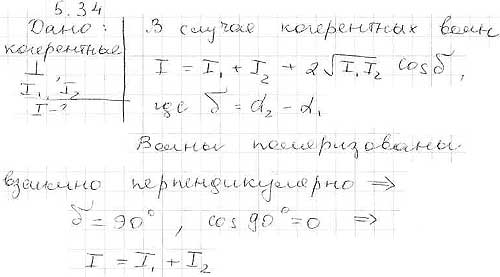 5.34
Дано:
когерентные
⊥,
I₁, I₂
I - ?
В случае когерентных волн
I = I₁ + I₂ + 2√I₁I₂ cos δ,
где δ = α₂ - α₁
Волны поляризованы
взаимно перпендикулярно ⇒
δ = 90°, cos 90° = 0 ⇒
I = I₁ + I₂